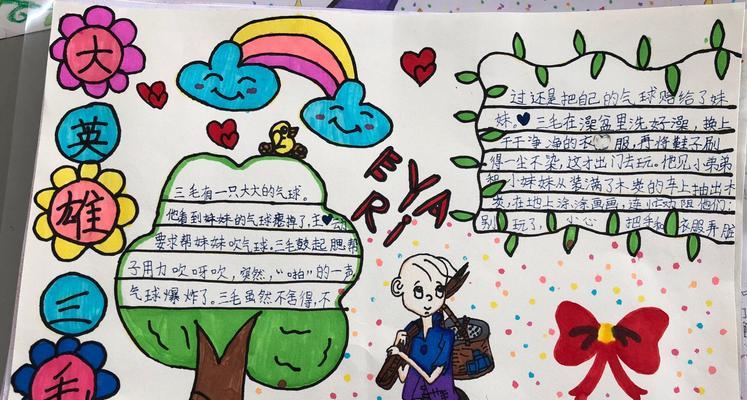 大
英
雄
三
毛
三毛有一只大大的气球。
他看到妹妹的气球瘪掉了,主动
要求帮妹妹吹气球。三毛鼓起腮帮
子用力吹呀吹,突然,“啪”的一声
气球爆炸了。三毛虽然不舍得,不
EYA
Ri
过还是把自己的气球贴给了妹
妹。三毛在澡盆里洗好澡,换上
干干净净的衣服,再将鞋子刷
得一尘不染,这才出门去玩。他见小弟弟
和小妹妹从装满了木炭的车上抽出木
炭,在地上涂涂画画,连忙劝阻他们:
别玩了,小心把手和衣服弄脏